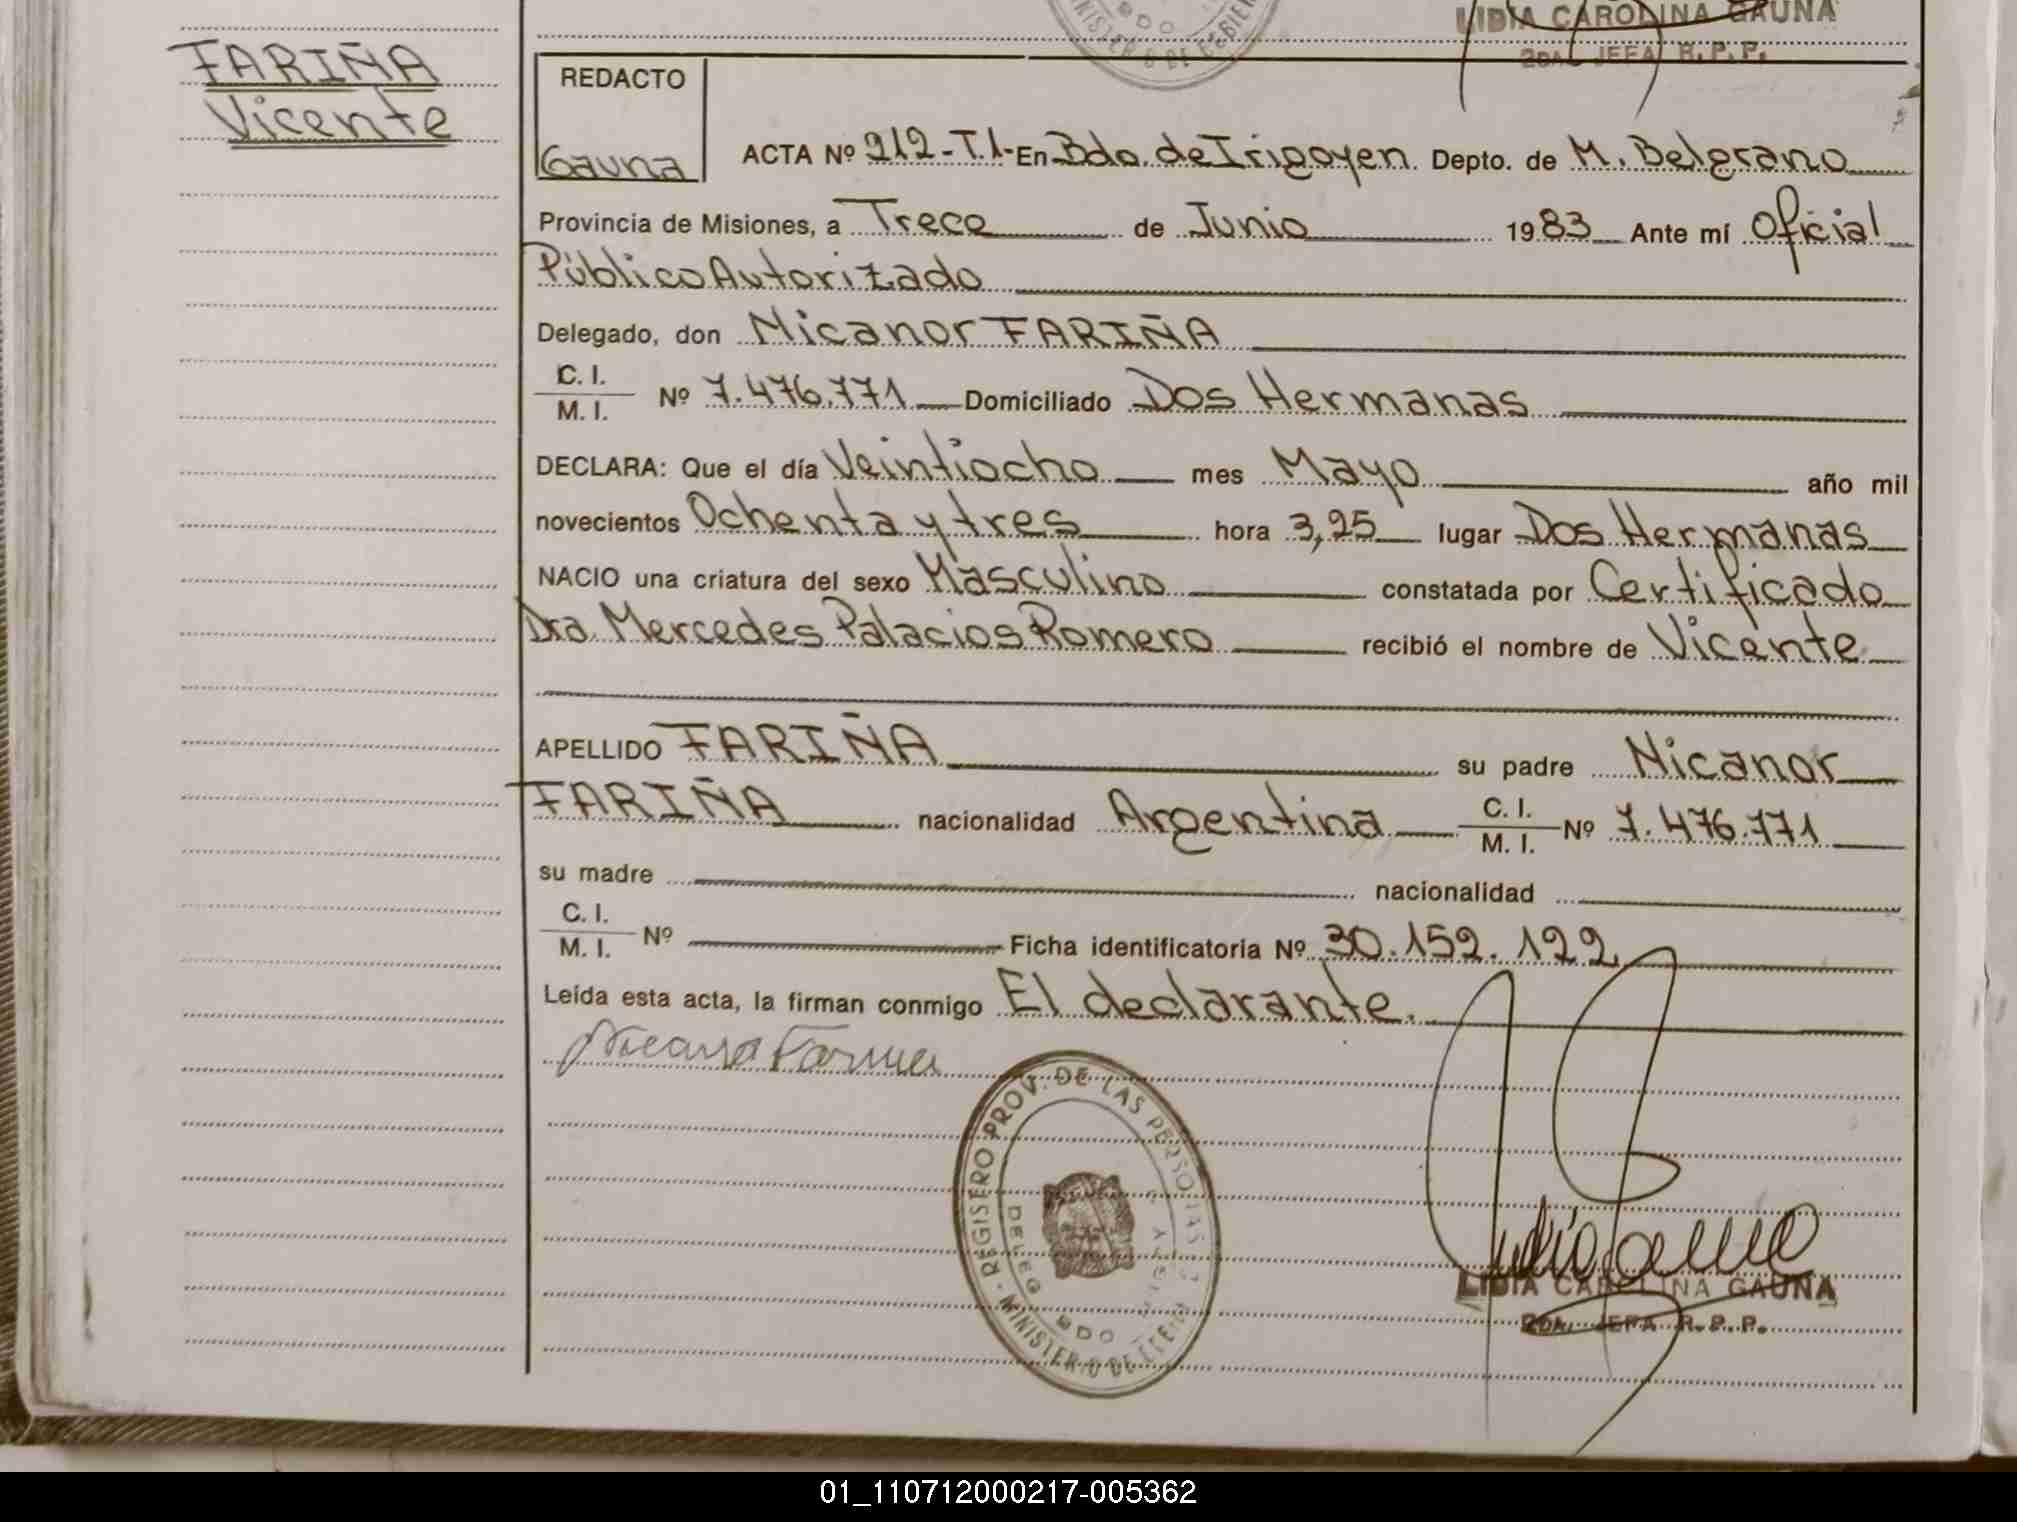 LIDIA CAROLINA GAUNA
2DA. JEFA R.P.P.
FARIÑA
Vicente
REDACTO
Gauna
ACTA Nº 212-T1- En Bdo. de Irigoyen Depto. de M. Belgrano
Provincia de Misiones, a Trece de Junio 1983 Ante mí Oficial
Público Autorizado
Delegado, don Nicanor FARIÑA
C. I.
M. I. Nº 7.476.771 Domiciliado Dos Hermanas
DECLARA: Que el día Veintiocho mes Mayo año mil
novecientos Ochenta y tres hora 3,25 lugar Dos Hermanas
NACIO una criatura del sexo Masculino constatada por Certificado
Dra. Mercedes Palacios Romero recibió el nombre de Vicente
APELLIDO FARIÑA su padre Nicanor
FARIÑA nacionalidad Argentina C. I. M. I. Nº 7.476.771
su madre nacionalidad
C. I.
M. I. Nº Ficha identificatoria Nº 30.152.122
Leída esta acta, la firman conmigo El declarante.
REGISTRO PROV. DE LAS PERSONAS
MINISTERIO DE
DELEG BDO
LIDIA CAROLINA GAUNA
2DA. JEFA R.P.P.
01_110712000217-005362